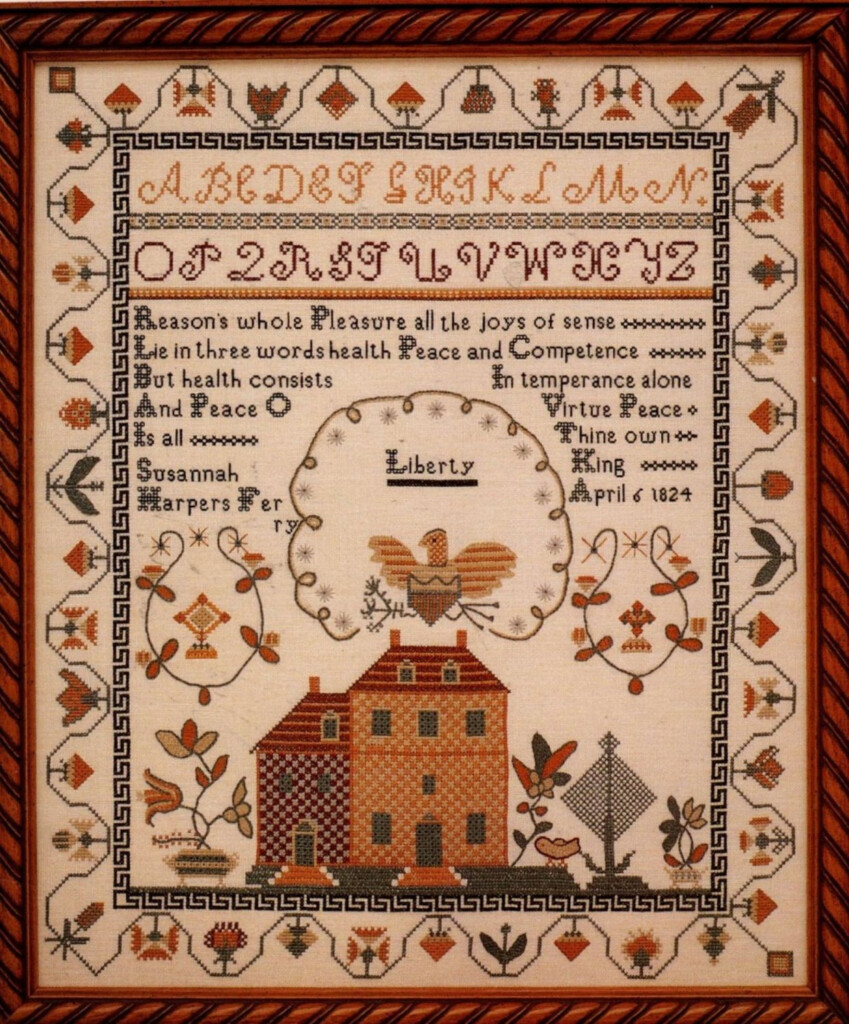 A B C D E F G H I K L M N.
O P Q R S T U V W X Y Z
Reason's whole Pleasure all the joys of sense
Lie in three words health Peace and Competence
But health consists In temperance alone
And Peace O Virtue Peace
Is all Thine own
Liberty
Susannah King
Harpers Fer
ry
April 6 1824